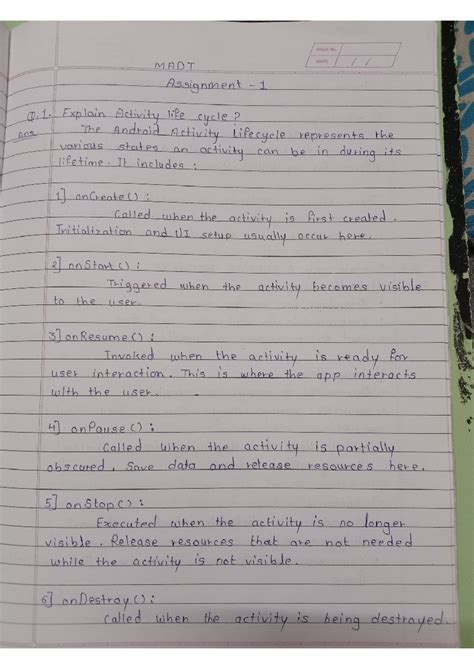 PAGE NO.
DATE / /
MADT
Assignment - 1
Q.1. Explain Activity life cycle ?
ans The Android Activity Lifecycle represents the
various states an activity can be in during its
lifetime. It includes :
1] onCreate() :
Called when the activity is first created.
Initialization and UI setup usually occur here.
2] onStart() :
Triggered when the activity becomes visible
to the user.
3] onResume() :
Invoked when the activity is ready for
user interaction. This is where the app interacts
with the user.
4] onPause() :
Called when the activity is partially
obscured. Save data and release resources here.
5] onStop() :
Executed when the activity is no longer
visible. Release resources that are not needed
while the activity is not visible.
6] onDestroy() :
Called when the activity is being destroyed.